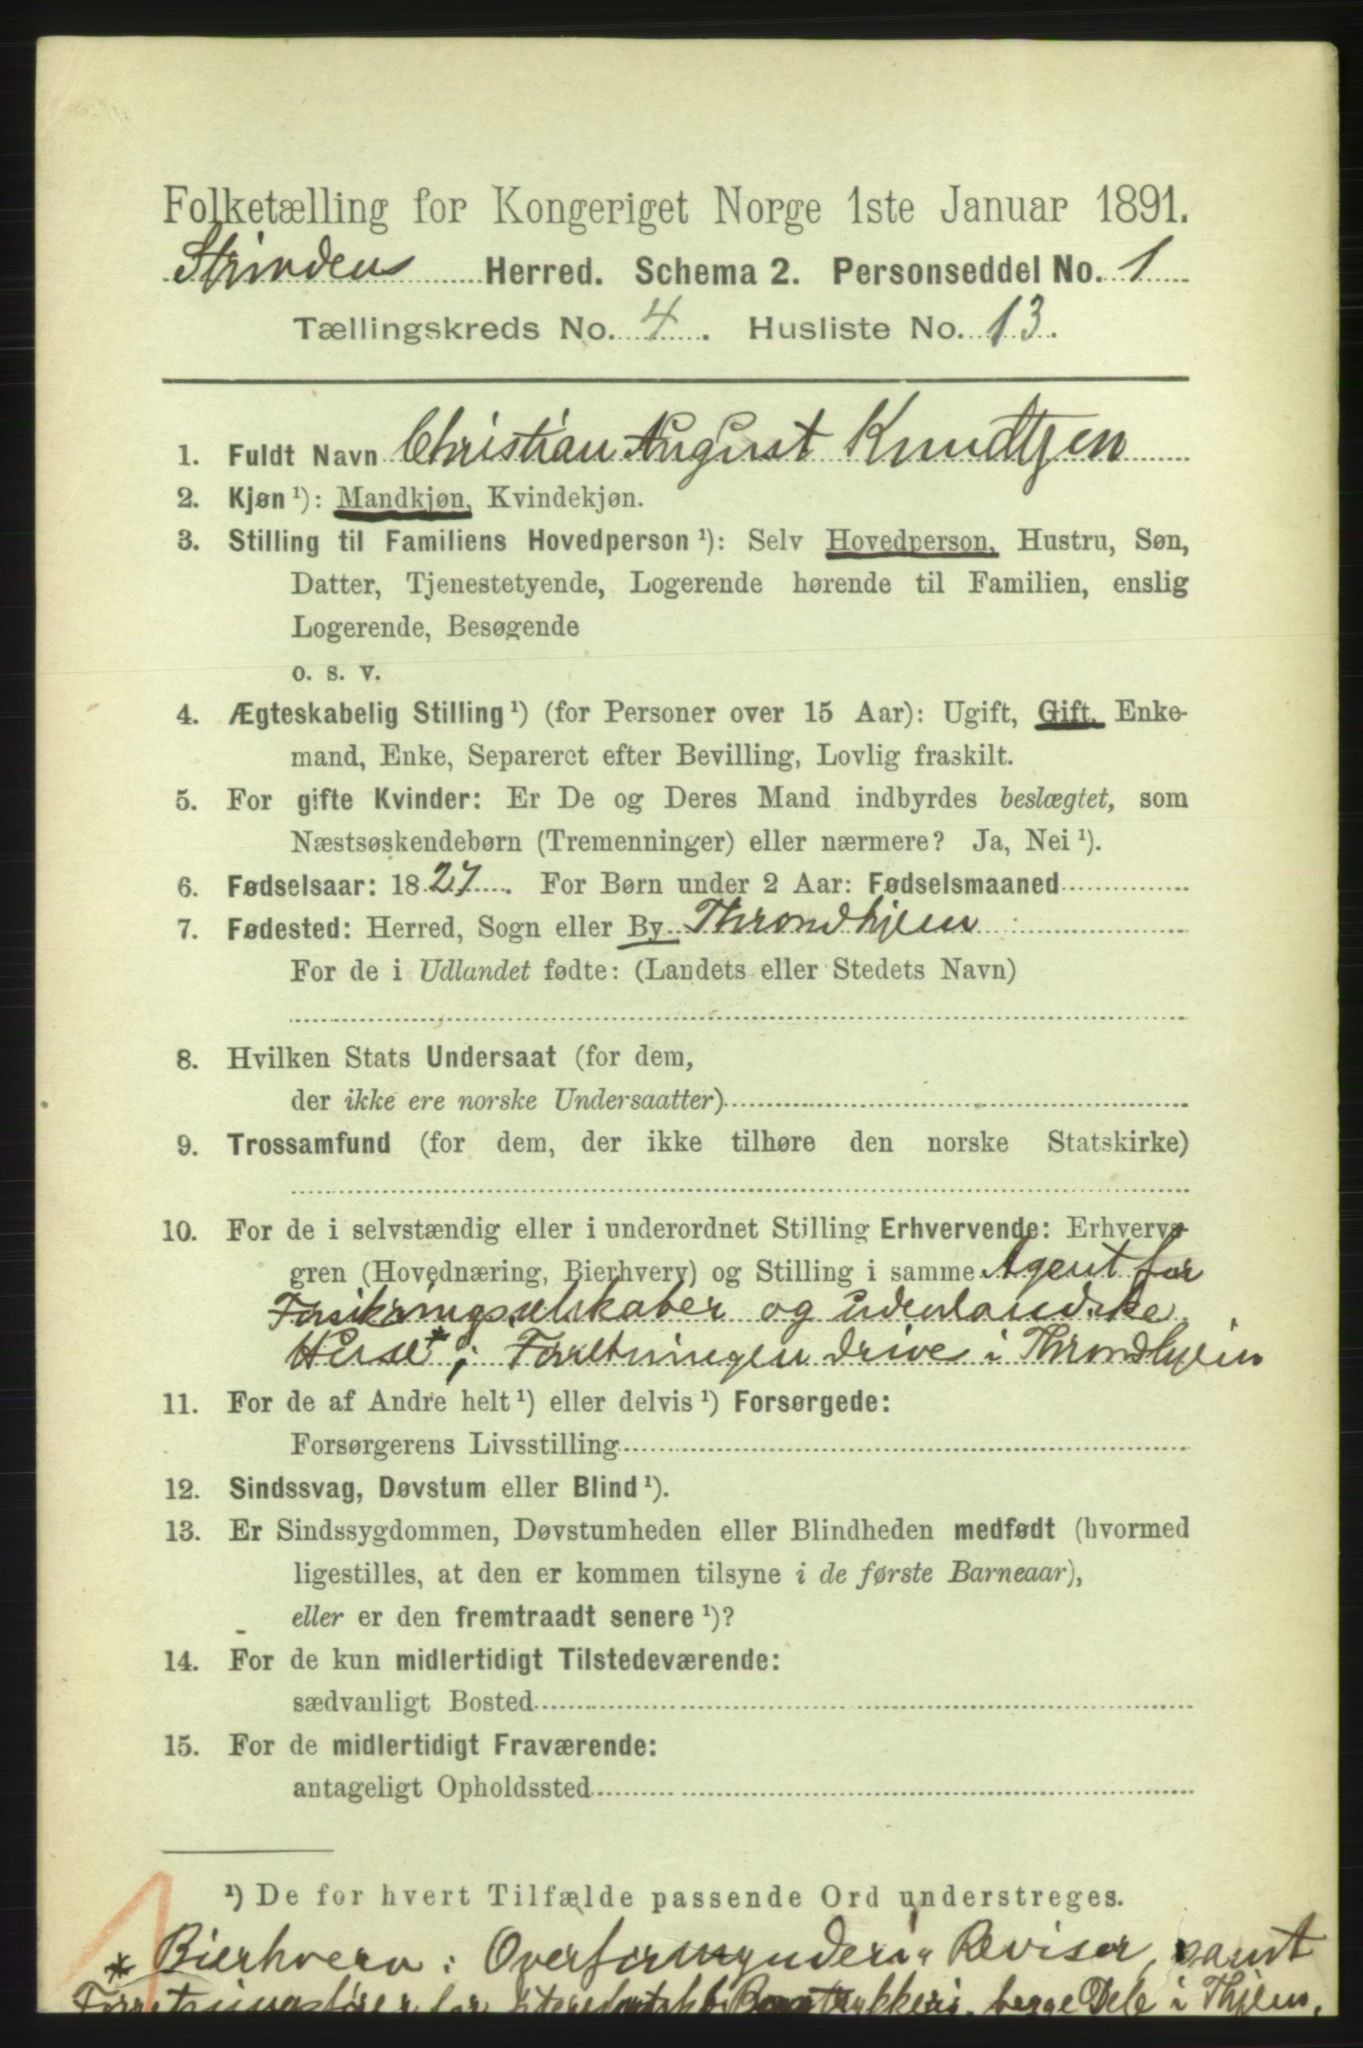 Folketælling for Kongeriget Norge 1ste Januar 1891.
Strindens Herred. Schema 2. Personseddel No. 1
Tællingskreds No. 4. Husliste No. 13.
1. Fuldt Navn Christian August Knudtzen
2. Kjøn ¹): Mandkjøn, Kvindekjøn.
3. Stilling til Familiens Hovedperson ¹): Selv Hovedperson, Hustru, Søn,
Datter, Tjenestetyende, Logerende hørende til Familien, enslig
Logerende, Besøgende
o. s. v.
4. Ægteskabelig Stilling ¹) (for Personer over 15 Aar): Ugift, Gift, Enke-
mand, Enke, Separeret efter Bevilling, Lovlig fraskilt.
5. For gifte Kvinder: Er De og Deres Mand indbyrdes beslægtet, som
Næstsøskendebørn (Tremenninger) eller nærmere? Ja, Nei ¹).
6. Fødselsaar: 1827. For Børn under 2 Aar: Fødselsmaaned
7. Fødested: Herred, Sogn eller By Throndhjem
For de i Udlandet fødte: (Landets eller Stedets Navn)
8. Hvilken Stats Undersaat (for dem,
der ikke ere norske Undersaatter)
9. Trossamfund (for dem, der ikke tilhøre den norske Statskirke)
10. For de i selvstændig eller i underordnet Stilling Erhvervende: Erhvervs-
gren (Hovednæring, Bierhverv) og Stilling i samme Agent for
Forsikringsselskaber og udenlandske
Huse*; Forretningen drive i Throndhjem
11. For de af Andre helt ¹) eller delvis ¹) Forsørgede:
Forsørgerens Livsstilling
12. Sindssvag, Døvstum eller Blind ¹).
13. Er Sindssygdommen, Døvstumheden eller Blindheden medfødt (hvormed
ligestilles, at den er kommen tilsyne i de første Barneaar),
eller er den fremtraadt senere ¹)?
14. For de kun midlertidigt Tilstedeværende:
sædvanligt Bosted
15. For de midlertidigt Fraværende:
antageligt Opholdssted
¹) De for hvert Tilfælde passende Ord understreges.
* Bierhverv: Overformynderi Revisor, samt
Forretningsfører for begge Dele i Thjem.